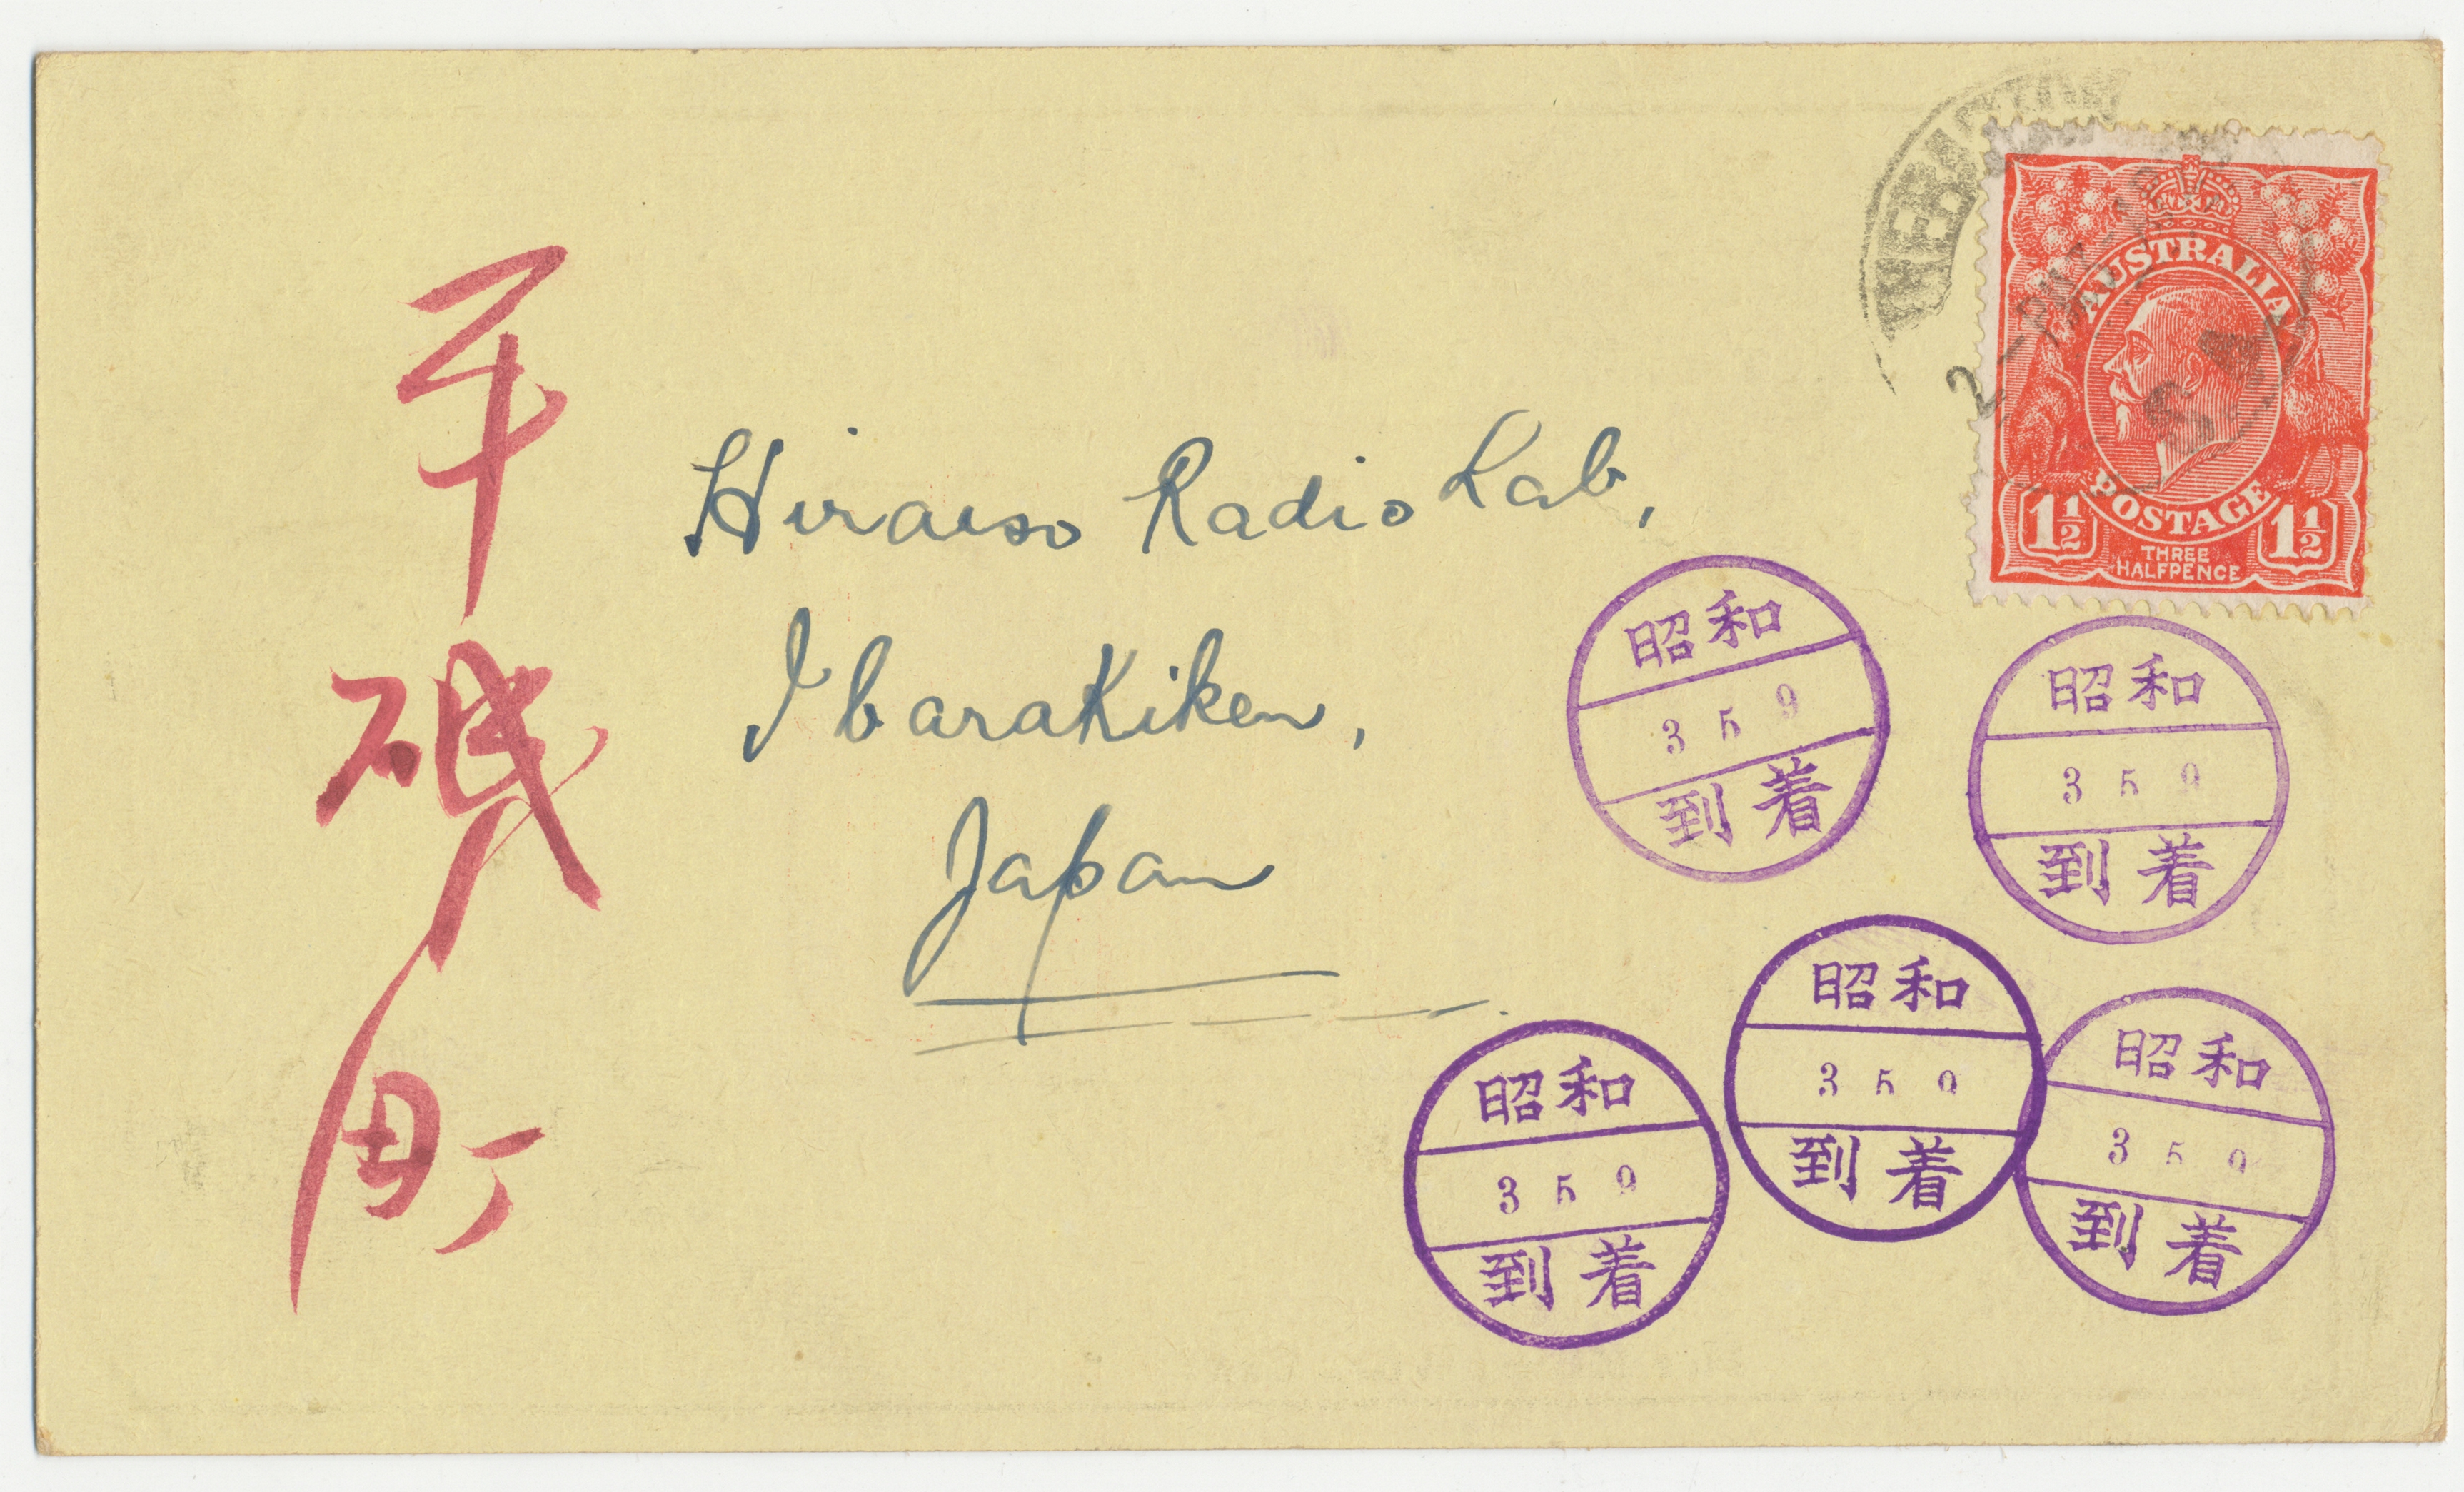 平磯町
Hiraiso Radio Lab,
Ibarakiken,
Japan
AUSTRALIA
POSTAGE
1½ 1½
THREE
HALFPENCE
昭和
3 5 9
到着
昭和
3 5 9
到着
昭和
3 5 9
到着
昭和
3 5 9
到着
昭和
3 5 9
到着